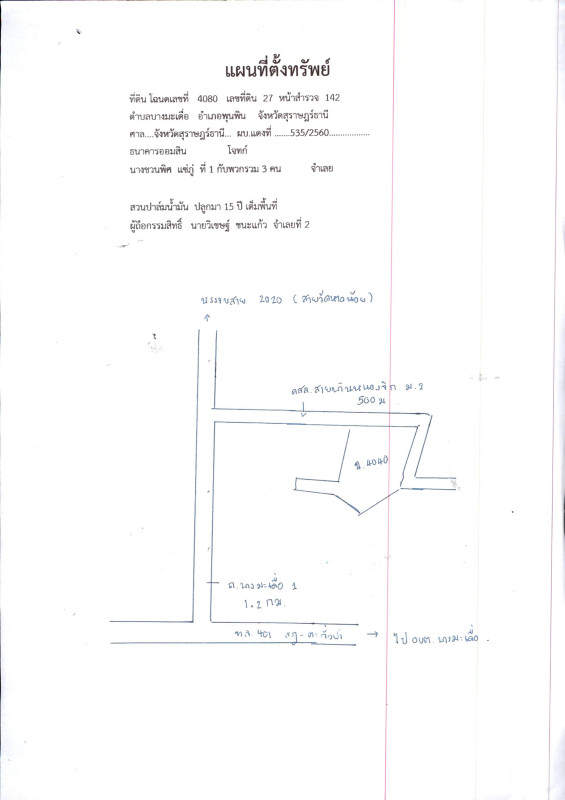 แผนที่ตั้งทรัพย์
ที่ดิน โฉนดเลขที่ 4080 เลขที่ดิน 27 หน้าสำรวจ 142
ตำบลบางมะเดื่อ อำเภอพุนพิน จังหวัดสุราษฎร์ธานี
ศาล....จังหวัดสุราษฎร์ธานี... ผบ.แดงที่ .......535/2560..................
ธนาคารออมสิน โจทก์
นางชวนพิศ แซ่ภู่ ที่ 1 กับพวกรวม 3 คน จำเลย
สวนปาล์มน้ำมัน ปลูกมา 15 ปี เต็มพื้นที่
ผู้ถือกรรมสิทธิ์ นายวิเชษฐ์ ชนะแก้ว จำเลยที่ 2
2020
คสล.สาย ม.2
500 ม
ฉ.4040
ถ.บางมะเดื่อ 1
1.2 กม.
ทล 401 สฎ-ตะกั่วป่า → ไป อบต. บางมะเดื่อ.